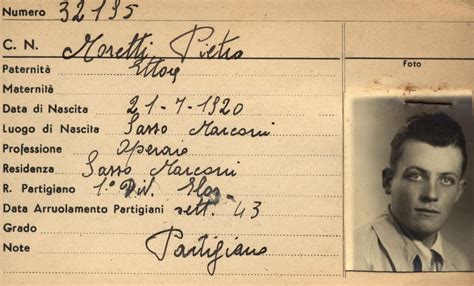 Numero 32195
C. N. Moretti Pietro
Foto
Paternità Ettore
Maternità
Data di Nascita 21-7-1920
Luogo di Nascita Sasso Marconi
Professione Operaio
Residenza Sasso Marconi
R. Partigiano 1° Div.
Data Arruolamento Partigiani sett. 43
Grado
Note Partigiano